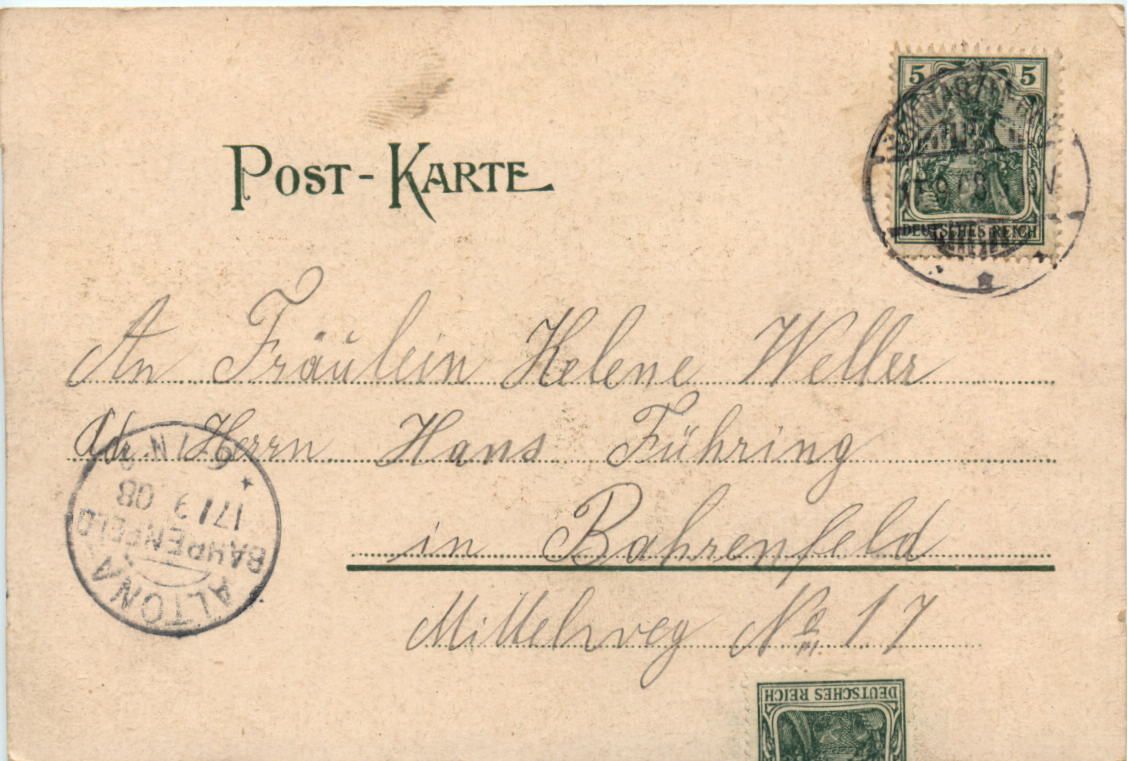 POST-KARTE
5 5
DEUTSCHES REICH
An Fräulein Helene Weller
Adr. Herrn Hans Führing
in Bahrenfeld
Mittelweg No 17
ALTONA
BAHRENFELD
17/9 08
6-7 N
DEUTSCHES REICH